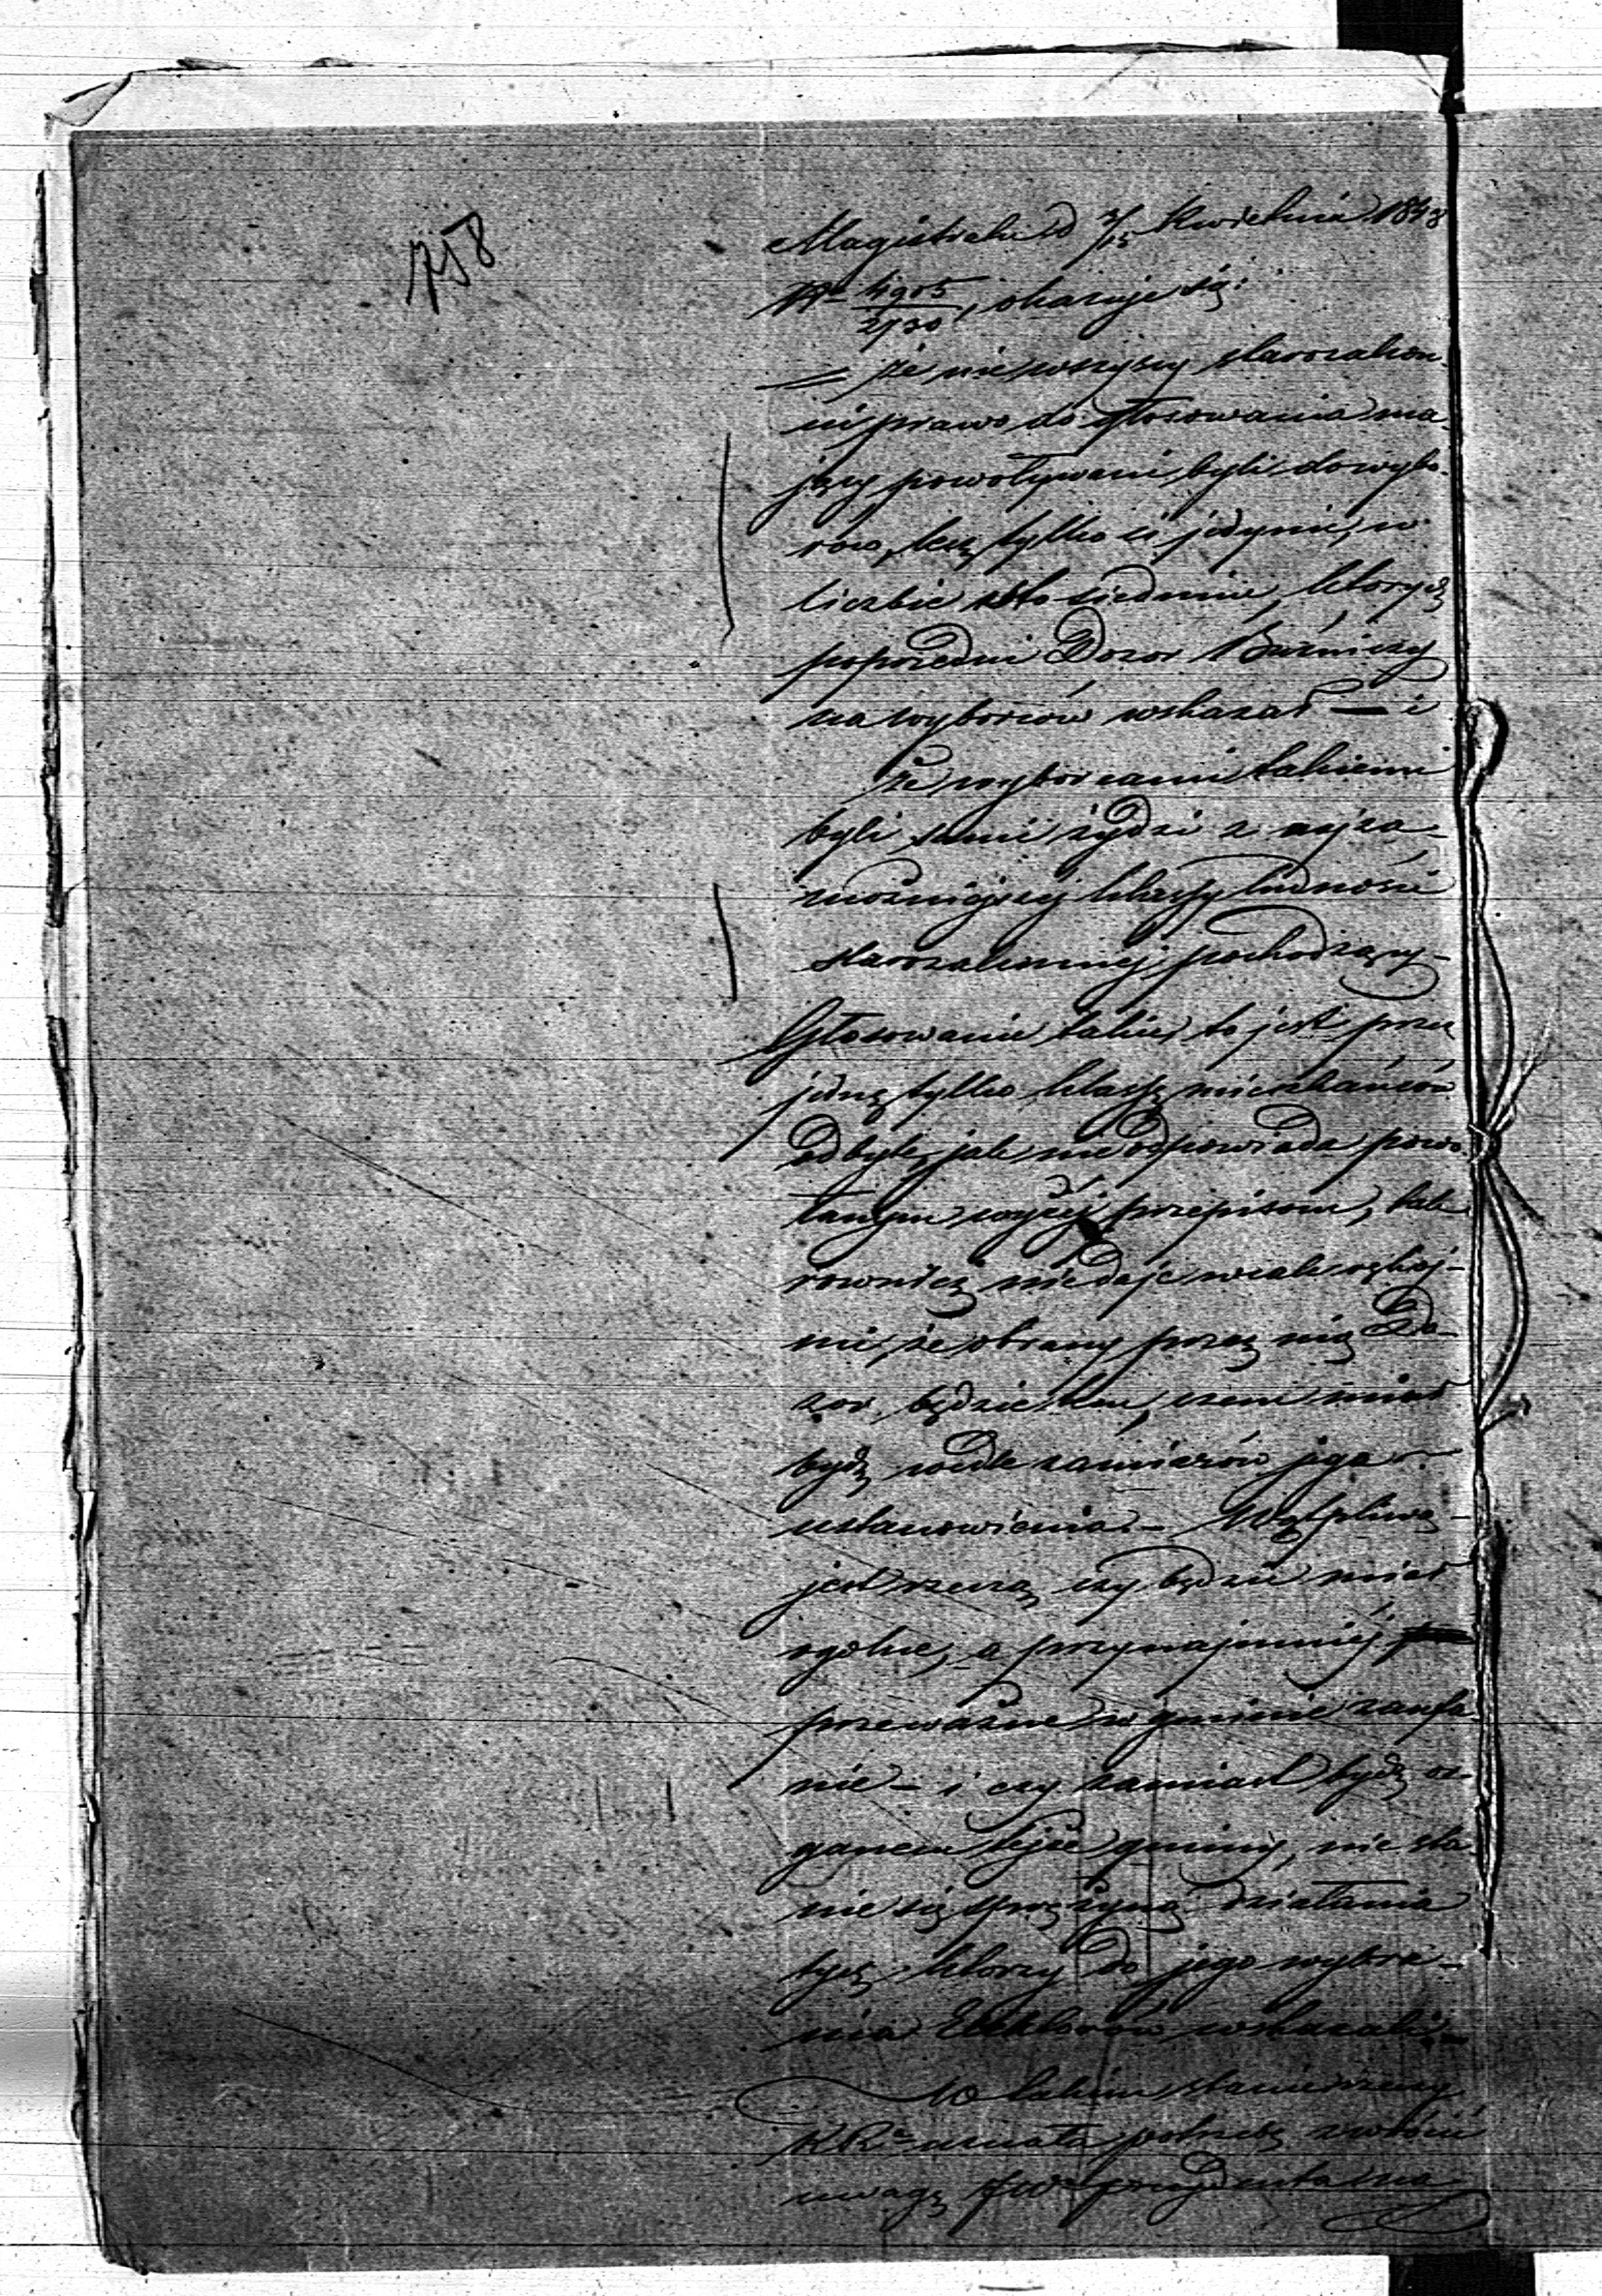 758
Magistratu d 3/15 Kwietnia 1843
Nr 4905/2730, okazuje się:
że nie wszyscy starozakon
ni prawo do głosowania ma
jący powoływani byli do wybo-
rów, lecz tylko ci jedynie, w
liczbie sto siedmiu, których
poprzedni Dozór Bużniczy
na wyborców wskazał — i
że wyborcami takiemi
byli sami żydzi z najza-
możniejszej klassy ludności
starozakonnej pochodzący –
Głosowanie takie, to jest przez
jednę tylko klassę mieszkańców
odbyte, jak nie odpowiada powo
łanym wyżej przepisom, tak
rownież nie daje wcale rękoj-
mi, że obrany przez nią Do-
zor, będzie tem, czem miał
bydź wedle zamiarów jego
ustanowienia. – Wątpliwą
jest rzeczą czy będzie miał
ogolne, a przynajmniej
przeważne w gminie zaufa
nie – i czy zamiast bydź or-
ganem tejże gminy, nie sta
nie się sprężyną działania
tych, ktorzy do jego wybra-
nia Elektorów wskazali. –
W takim stanie rzeczy
KRa uznała potrzebę zwrócić
uwagę JWo Prezydenta na